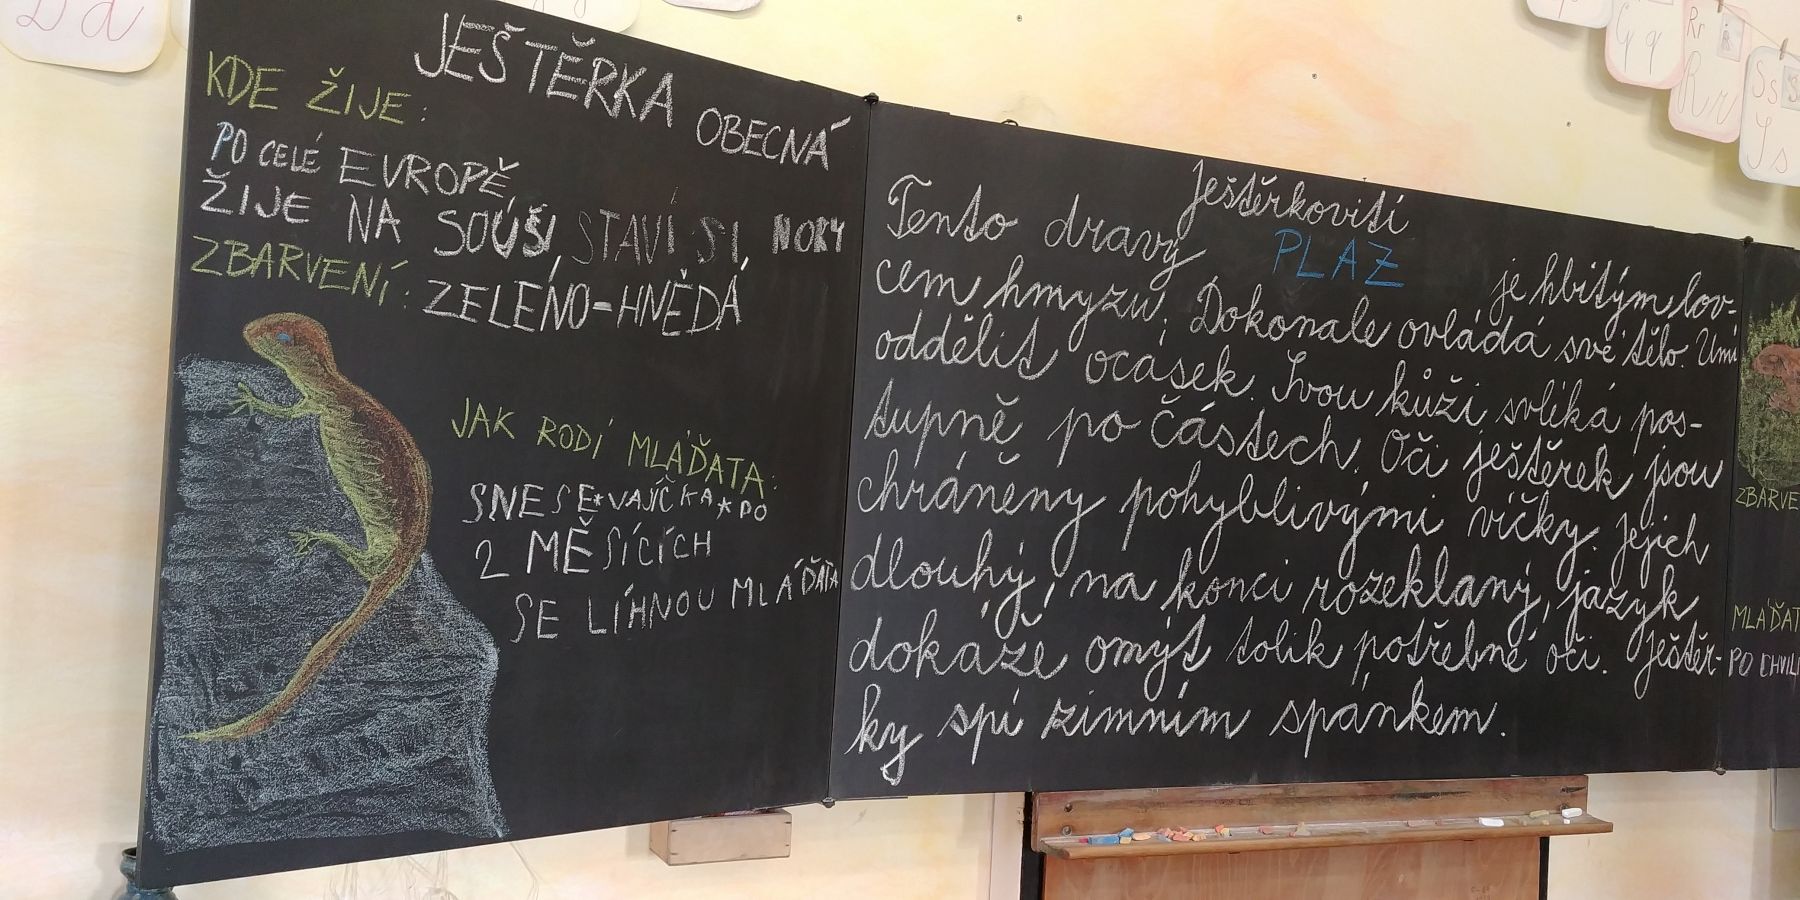 JEŠTĚRKA OBECNÁ
KDE ŽIJE:
PO CELÉ EVROPĚ,
ŽIJE NA SOUŠI, STAVÍ SI NORY
ZBARVENÍ: ZELENO-HNĚDÁ
JAK RODÍ MLÁĎATA:
SNESE*VAJÍČKA*PO
2 MĚSÍCÍCH
SE LÍHNOU MLÁĎATA
Ještěrkovití
Tento dravý PLAZ je hbitým lov-
cem hmyzu. Dokonale ovládá své tělo. Umí
oddělit ocásek. Svou kůži svléká pos-
tupně po částech. Oči ještěrek jsou
chráněny pohyblivými víčky. Jejich
dlouhý, na konci rozeklaný, jazyk
dokáže omýt tolik potřebné oči. Ještěr-
ky spí zimním spánkem.
ZBARVE
MLÁĎAT
PO CHVILI
Dd
Qq
Rr
Rr
Ss
Ss